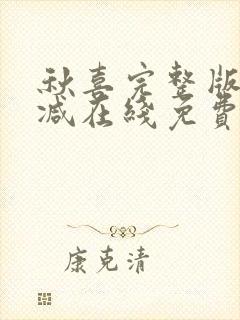 秋喜完整版
减在綫免費
康克清